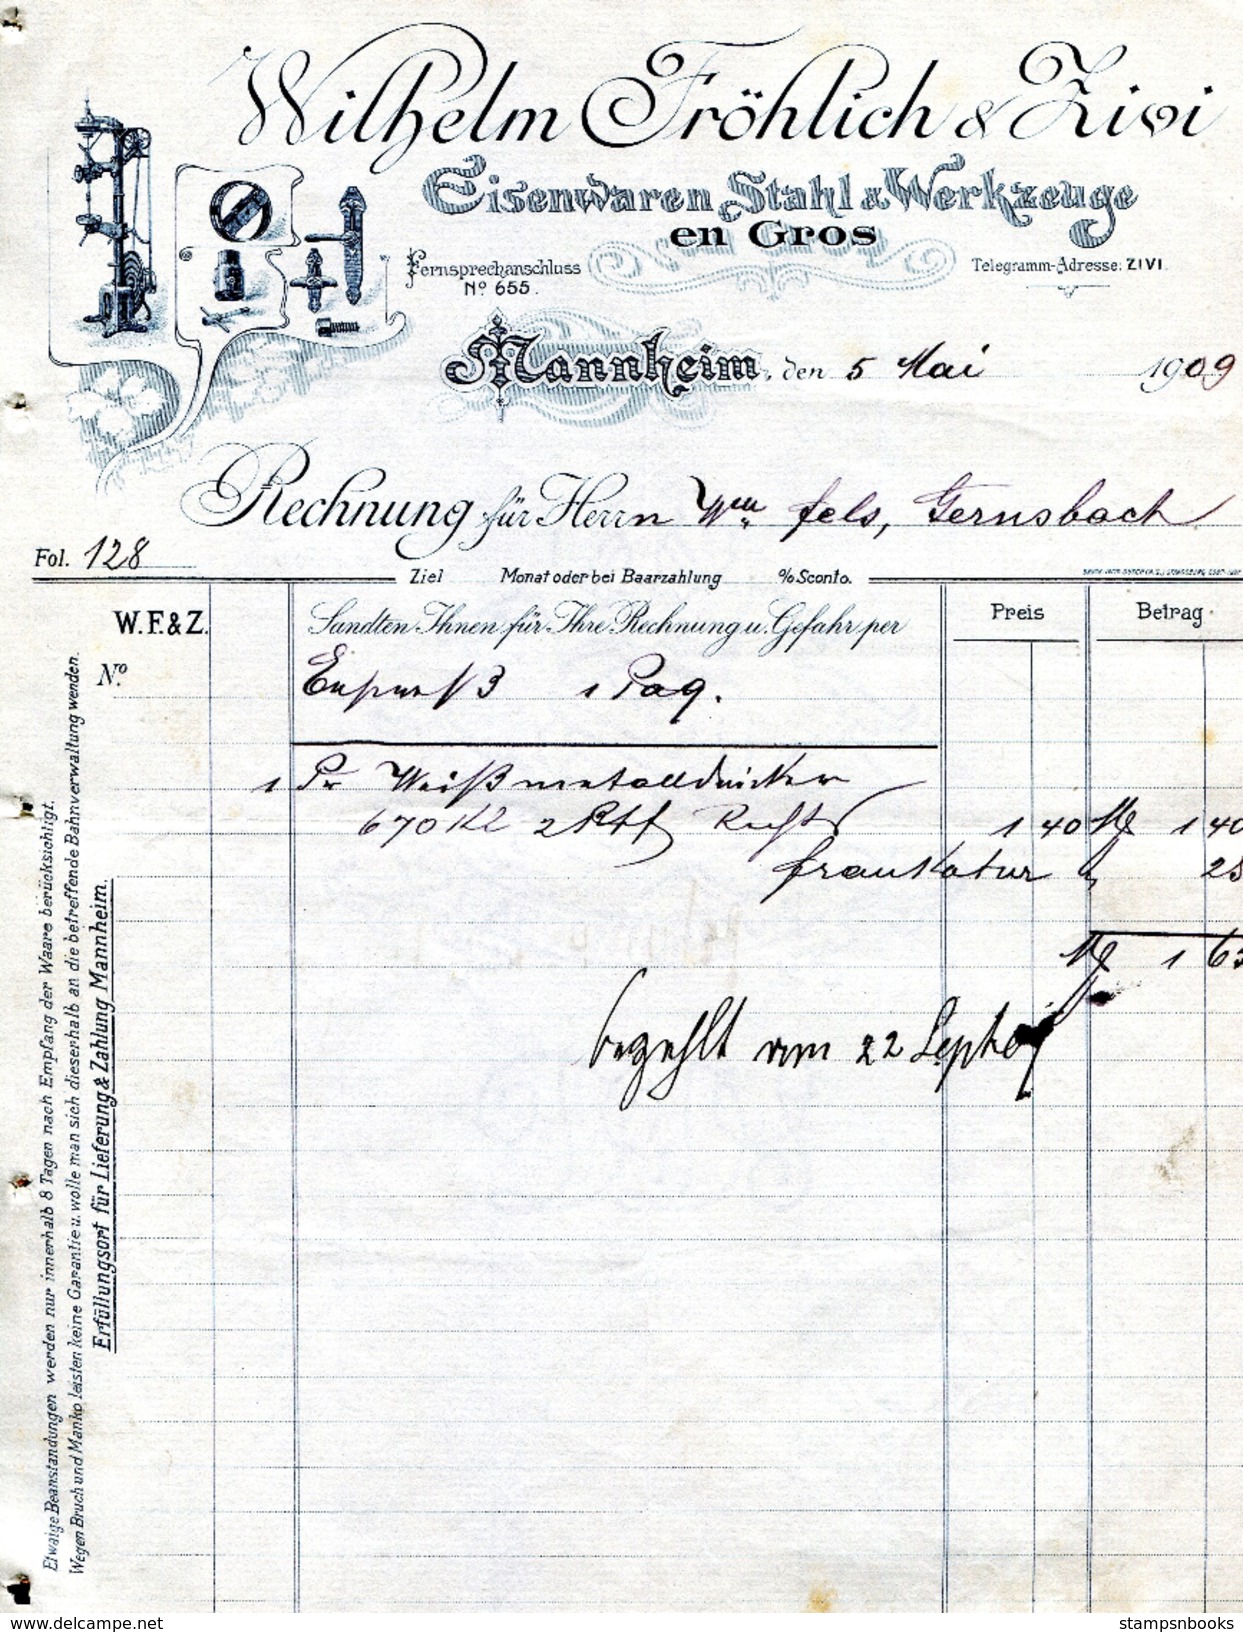 Wilhelm Fröhlich & Zivi
Eisenwaren, Stahl & Werkzeuge
en Gros
Fernsprechanschluss
No 655.
Telegramm-Adresse: ZIVI.
Mannheim, den 5 Mai 1909
Rechnung für Herrn Wm Fels, Gernsbach
Fol. 128
Ziel Monat oder bei Baarzahlung % Sconto.
W. F. & Z.
Sandten Ihnen für Ihre Rechnung u. Gefahr per
Preis
Betrag
No
1 Paq.
1 Pr Weißmetalldrücker
670 2 Rechts 1 40 M 1 40
Frankatur " 25
M 1 65
bezahlt vom 22 Septbr
Etwaige Beanstandungen werden nur innerhalb 8 Tagen nach Empfang der Waare berücksichtigt.
Wegen Bruch und Manko leisten keine Garantie u. wolle man sich dieserhalb an die betreffende Bahnverwaltung wenden.
Erfüllungsort für Lieferung & Zahlung Mannheim.
www.delcampe.net
stampsnbooks